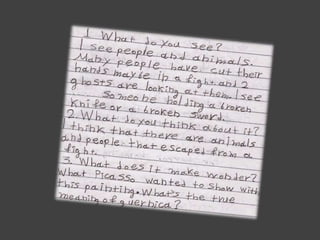 1 What do you see?
I see people and animals.
Many people have cut their
hands maybe in a fight. and 2
ghosts are looking at them. I see
someone holding a broken
knife or a broken sword.
2. What do you think about it?
I think that there are animals
and people that escaped from a
fight.
3. What does it make wonder?
What Picasso wanted to show with
this painting. What's the true
meaning of guernica?